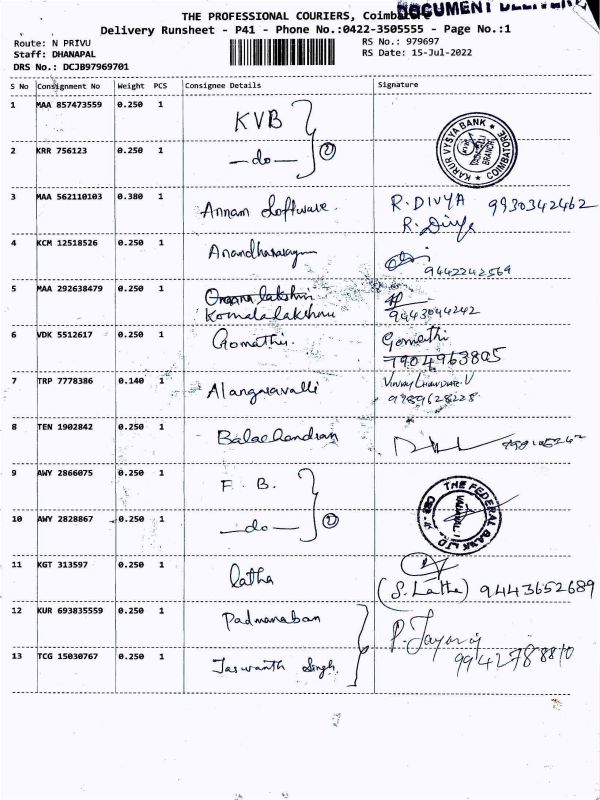 DOCUMENT DELIVERY
THE PROFESSIONAL COURIERS,
Delivery Runsheet - P41 - Phone No.:0422-3505555 - Page No.:1
Route: N PRIVU
RS No.: 979697
Staff: DHANAPAL
RS Date: 15-Jul-2022
DRS No.: DCJB97969701
S No Consignment No Weight PCS Consignee Details Signature
1 MAA 857473559 0.250 1 KVB
2 KRR 756123 0.250 1 —do— 2
KARUR VYSYA BANK ★ COIMBATORE ★ BRANCH
3 MAA 562110103 0.380 1 Annam Software. R. DIVYA 9930342462
R. Divya
4 KCM 12518526 0.250 1 9442242569
5 MAA 292638479 0.250 1
Komalalakshmi 9443044242
6 VDK 5512617 0.250 1 Gomathi. Gomathi
7904963805
7 TRP 7778386 0.140 1 Alangaravalli
8 TEN 1902842 0.250 1 Balachandran
9 AWY 2866075 0.250 1 F. B.
10 AWY 2828867 0.250 1 —do— 2
THE FEDERAL BANK LTD
11 KGT 313597 0.250 1 latha
(S. Latha) 9443652689
12 KUR 693835559 0.250 1 Padmanaban
13 TCG 15030767 0.250 1 Jaswanth Singh